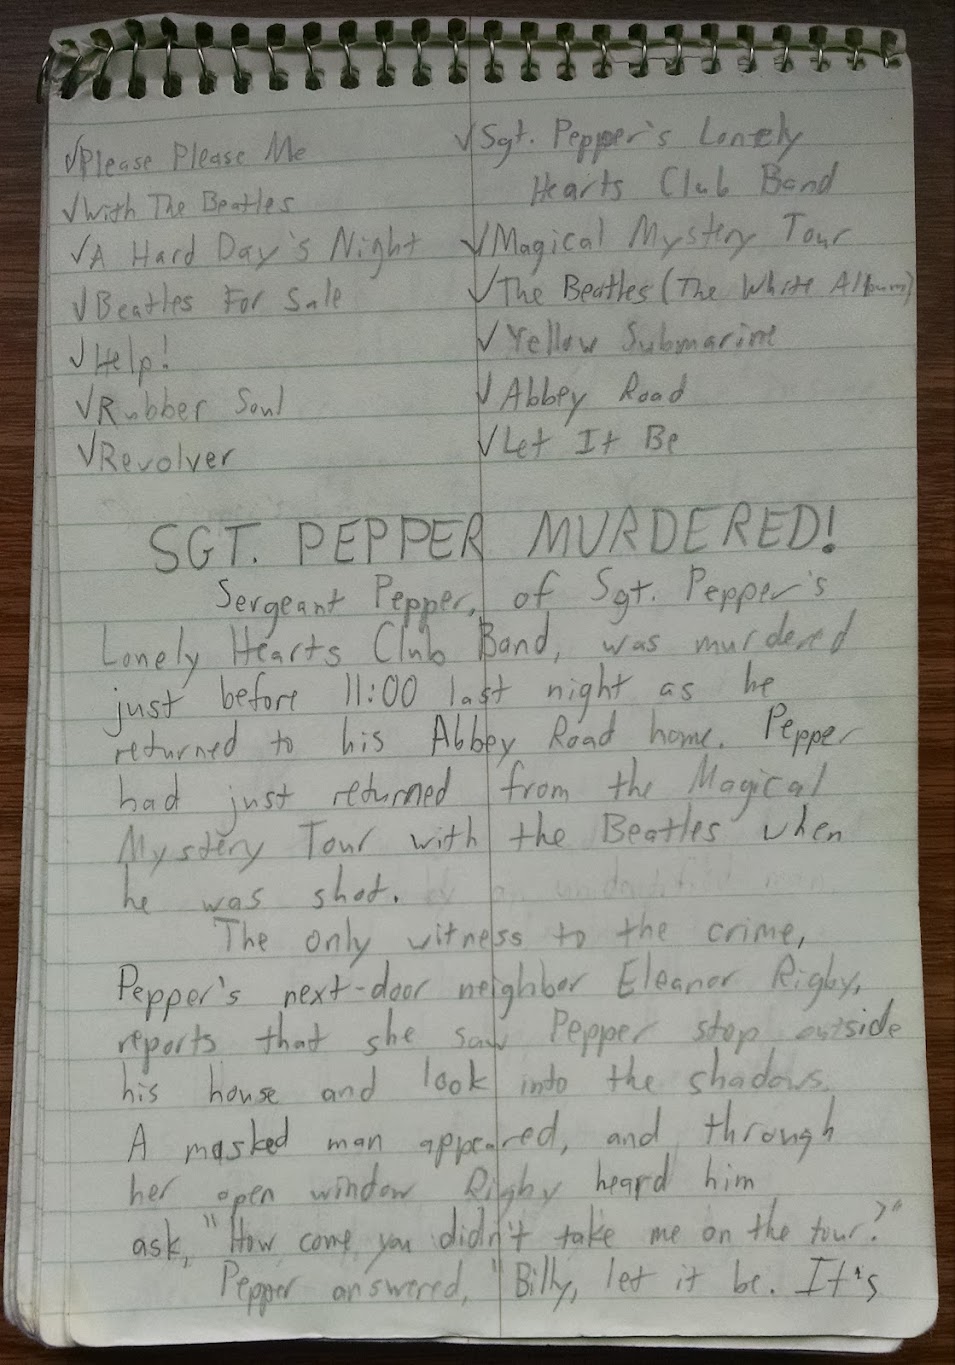 √Please Please Me
√With The Beatles
√A Hard Day's Night
√Beatles For Sale
√Help!
√Rubber Soul
√Revolver
√Sgt. Pepper's Lonely
Hearts Club Band
√Magical Mystery Tour
√The Beatles (The White Album)
√Yellow Submarine
√Abbey Road
√Let It Be
SGT. PEPPER MURDERED!
Sergeant Pepper, of Sgt. Pepper's
Lonely Hearts Club Band, was murdered
just before 11:00 last night as he
returned to his Abbey Road home. Pepper
had just returned from the Magical
Mystery Tour with the Beatles when
he was shot.
The only witness to the crime,
Pepper's next-door neighbor Eleanor Rigby,
reports that she saw Pepper stop outside
his house and look into the shadows.
A masked man appeared, and through
her open window Rigby heard him
ask, "How come you didn't take me on the tour?"
Pepper answered, "Billy, let it be. It's